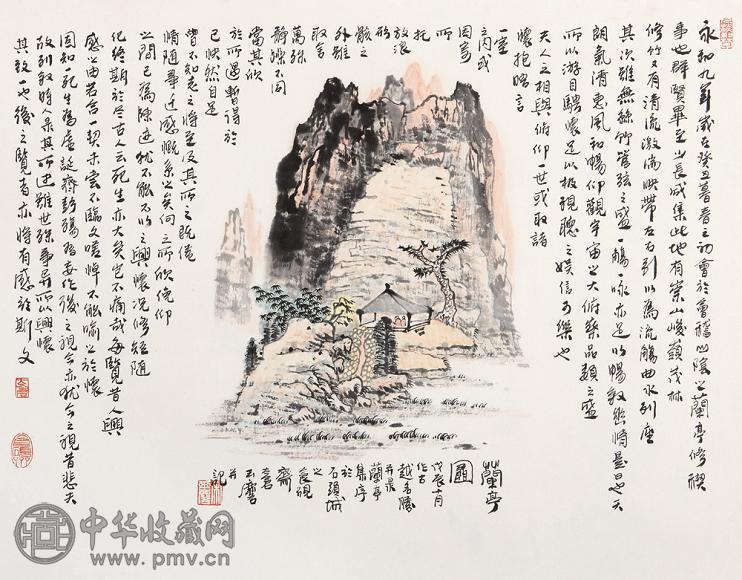 永和九年歲在癸丑暮春之初會於會稽山陰之蘭亭修禊
事也群賢畢至少長咸集此地有崇山峻嶺茂林
修竹又有清流激湍映帶左右引以為流觴曲水列座
其次雖無絲竹管弦之盛一觴一咏亦足以暢敘幽情是日也天
朗氣清惠風和暢仰觀宇宙之大俯察品類之盛
所以游目騁懷足以極視聽之娛信可樂也
夫人之相與俯仰一世或取諸
懷抱晤言
一室
之內或
因寄
所
托
放浪
形
骸之
外雖
取舍
萬殊
靜躁不同
當其欣
於所遇暫得於
己快然自足
曾不知老之將至及其所之既倦
情隨事遷感慨系之矣向之所欣俛仰
之間已為陳迹猶不能不以之興懷況修短隨
化終期於盡古人云死生亦大矣豈不痛哉每覽昔人興
感之由若合一契未嘗不臨文嗟悼不能喻之於懷
固知一死生為虛誕齊彭殤為妄作後之視今亦猶今之視昔悲夫
故列敘時人录其所述雖世殊事異所以興懷
其致一也後之覽者亦將有感於斯文
蘭亭
圖
戊辰十月
作古
越
并录
蘭亭
集序
於
石頭城
之
齋
并
記
中华收藏网
www.pmv.cn